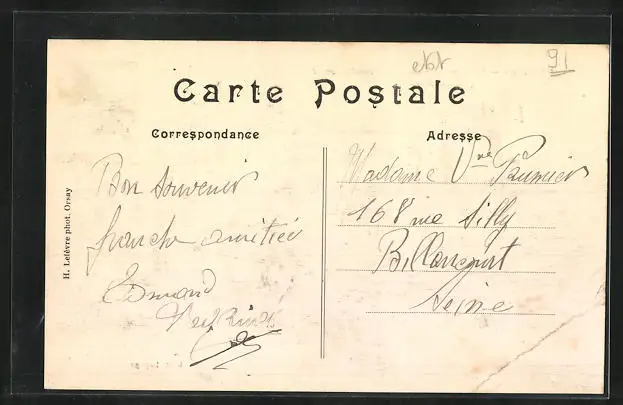 91
Carte Postale
Correspondance
Adresse
Bon souvenir
franche amitiée
Edmond
H. Lefèvre phot. Orsay
Madame Vve
168 rue Silly
Billancourt
Seine